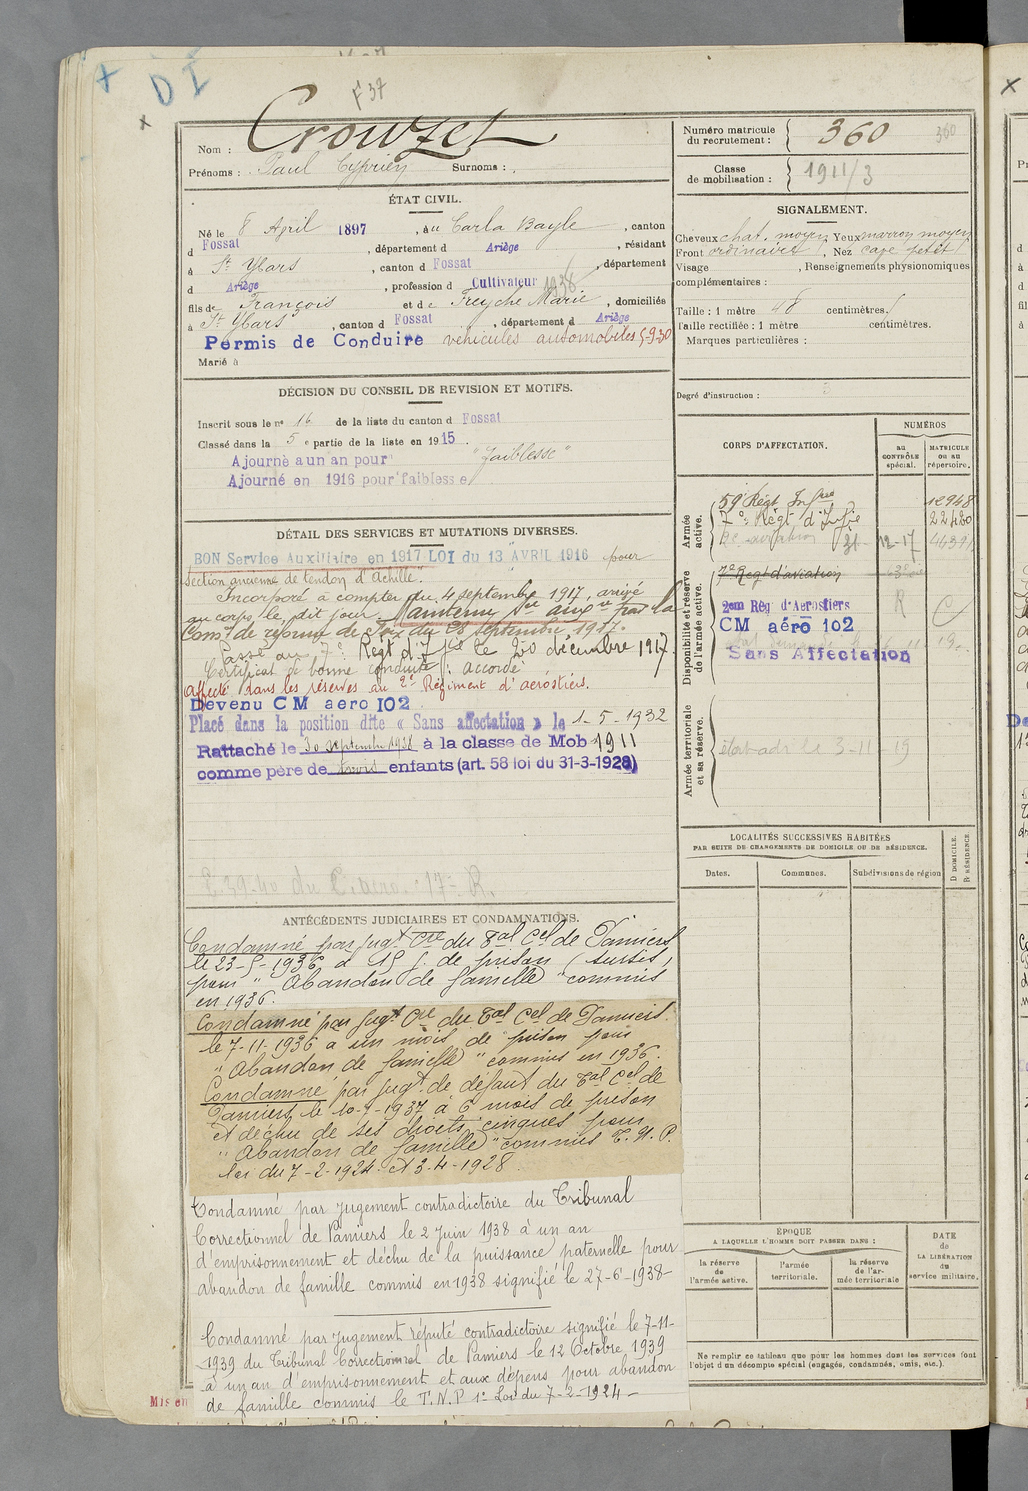 D I
F 37
Nom : Crouzet
Prénoms : Paul Cyprien Surnoms :
Numéro matricule du recrutement : 360
360
Classe de mobilisation : 1911/3
ÉTAT CIVIL.
Né le 8 April 1897, à Carla Bayle, canton
d Fossat, département d Ariège, résidant
à St Ybars, canton d Fossat, département
d Ariège, profession d Cultivateur 1938
fils de François et de Freyche Marie, domiciliés
à St Ybars, canton d Fossat, département d Ariège
Permis de Conduire véhicules automobiles 5-9-30
Marié à
SIGNALEMENT.
Cheveux chat. moyen Yeux marron moyen
Front ordinaire, Nez cave petit
Visage , Renseignements physionomiques
complémentaires :
Taille : 1 mètre 48 centimètres.
Taille rectifiée : 1 mètre centimètres.
Marques particulières :
Degré d'instruction :
DÉCISION DU CONSEIL DE REVISION ET MOTIFS.
Inscrit sous le no 16 de la liste du canton d Fossat
Classé dans la 5e partie de la liste en 1915.
Ajourné a un an pour "faiblesse"
Ajourné en 1916 pour faiblesse
DÉTAIL DES SERVICES ET MUTATIONS DIVERSES.
BON Service Auxiliaire en 1917 LOI du 13 AVRIL 1916 pour
section ancienne de tendon d'Achille".
Incorporé à compter du 4 septembre 1917, arrivé
au corps le dit jour. Maintenu Sce auxre par la
Comon de réforme de Foix du 28 septembre 1917.
Passé au 7e Régt d'Infie le 20 décembre 1917
Certificat de bonne conduite : accordé
Affecté dans les réserves au 2e Régiment d'aérostiers.
Devenu CM aero 102
Placé dans la position dite « Sans affectation » le 1-5-1932
Rattaché le 30 septembre 1938 à la classe de Mob 1911
comme père de trois enfants (art. 58 loi du 31-3-1928)
CORPS D'AFFECTATION.
NUMÉROS
au CONTRÔLE spécial.
MATRICULE ou au répertoire.
Armée active.
59e Régt Infrie 12948
7e Régt d'Infie 22480
Disponibilité et réserve de l'armée active.
2em Rég d'Aerostiers
R
CM aéro 102
Sans Affectation
Armée territoriale et sa réserve.
3-11-19
LOCALITÉS SUCCESSIVES HABITÉES
PAR SUITE DE CHANGEMENTS DE DOMICILE OU DE RÉSIDENCE.
Dates. Communes. Subdivisions de région
D DOMICILE.
R RÉSIDENCE
ANTÉCÉDENTS JUDICIAIRES ET CONDAMNATIONS.
Condamné par jugt Cre du Tal Cel de Pamiers
le 23-5-1936 à 15 j. de prison (sursis)
pour "Abandon de famille" commis
en 1936.
Condamné par jugt Cre du Tal Cel de Pamiers
le 7-11-1936 à un mois de prison pour
"Abandon de famille" commis en 1936.
Condamné par jugt de défaut du Tal Cel de
Pamiers le 10-7-1937 à 6 mois de prison
et déchu de ses droits civiques pour
"Abandon de famille" commis T.N.P.
loi du 7-2-1924 et 3-4-1928
Condamné par jugement contradictoire du Tribunal
Correctionnel de Pamiers le 2 Juin 1938 à un an
d'emprisonnement et déchu de la puissance paternelle pour
abandon de famille commis en 1938 signifié le 27-6-1938-
Condamné par jugement réputé contradictoire signifié le 7-11-
1939 du Tribunal Correctionnel de Pamiers le 12 Octobre 1939
à un an d'emprisonnement et aux dépens pour abandon
de famille commis le T.N.P 1e Loi du 7-2-1924-
ÉPOQUE
A LAQUELLE L'HOMME DOIT PASSER DANS :
la réserve de l'armée active.
l'armée territoriale.
la réserve de l'armée territoriale
DATE de LA LIBÉRATION du service militaire.
Ne remplir ce tableau que pour les hommes dont les services font
l'objet d'un décompte spécial (engagés, condamnés, omis, etc.).
Mis en